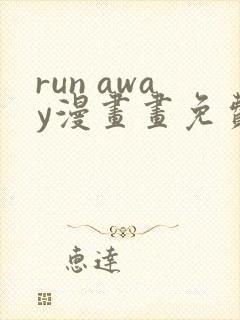 run awa
y漫畫畫免費
恵達